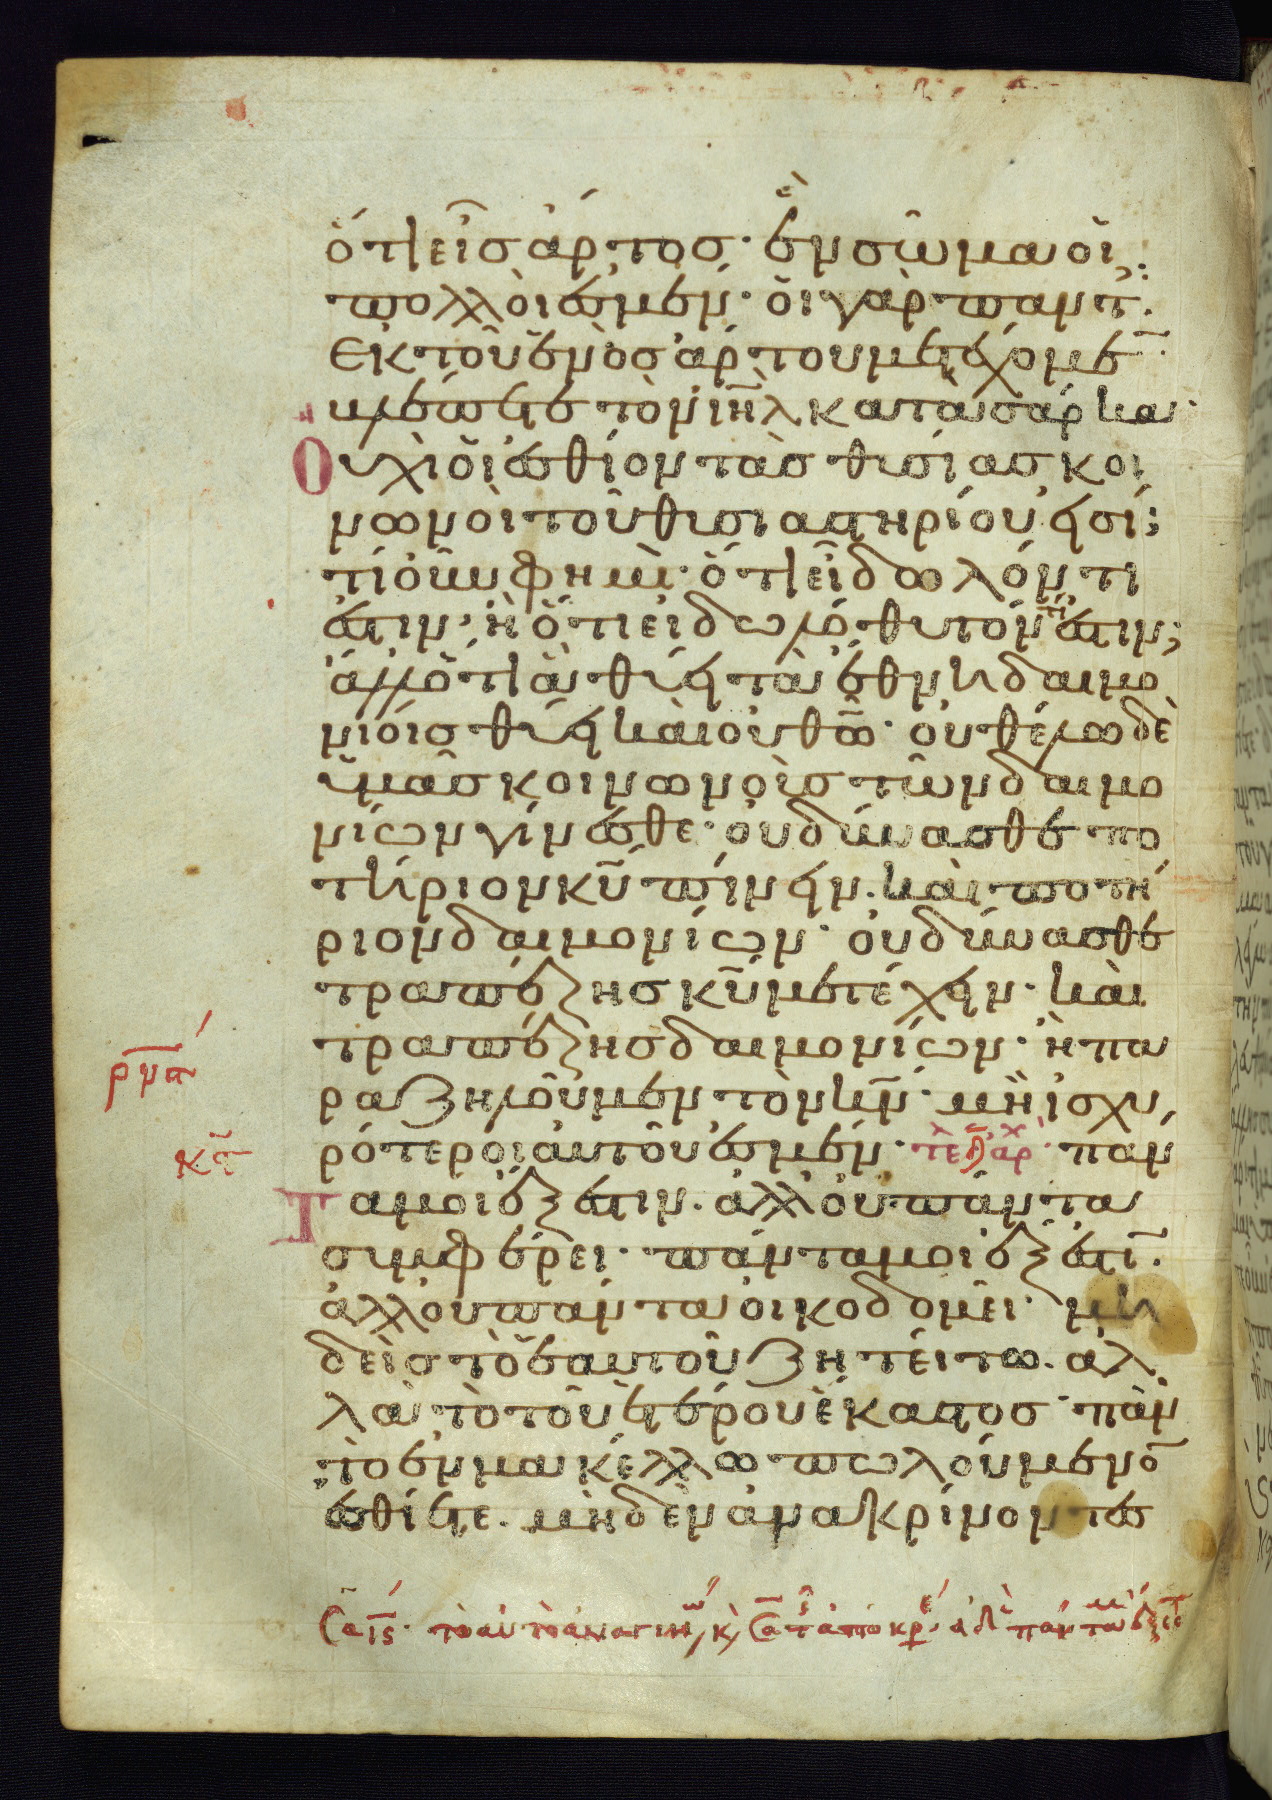 ὅτι εἷς ἄρτος· ἓν σῶμα οἱ
πολλοί ἐσμεν· οἱ γὰρ πάντ
ἐκ τοῦ ἑνὸς ἄρτου μετέχομε̄·
βλέπετε τὸν ἰη̄λ κατὰ σάρκα·
Οὐχὶ οἱ ἐσθίοντας θυσίας κοι
νωνοὶ τοῦ θυσιαστηρίου εἰσί;
τί οὖν φημι· ὅτι εἴδωλόν τι
ἐστιν· ἢ ὅτι εἰδωλόθυτόν τί ἐστιν;
ἀλλ ὅτι ἃ θύει τὰ ἔθνη δαιμο
νίοις θύει καὶ οὐ θω̄· οὐ θέλω δὲ
ὑμᾶς κοινωνοὺς τῶν δαιμο
νίων γίνεσθε· οὐ δύνασθε πο
τήριον κῡ πίνειν· καὶ ποτή
ριον δαιμονίων· οὐ δύνασθε
τραπέζης κῡ μετέχειν· καὶ
τραπέζης δαιμονίων· ἢ πα
ραζηλοῦμεν τὸν κν̄· μὴ ἰσχυ
ρότεροι αὐτοῦ ἐσμέν· τε ἀρχ πάν
Τα μοι ἔξεστιν· ἀλλ οὐ πάντα
συμφέρει· πάντα μοι ἔξεστῑ·
ἀλλ οὐ πάντα οἰκοδομεῖ· μη
δεὶς τὸ ἑαυτοῦ ζητείτω· ἀλ
λὰ τὸ τοῦ ἑτέρου ἕκαστος· πᾶν
τὸ ἐν μακέλλω πωλούμενο̄
ἐσθίετε· μηδὲν ἀνακρίνοντες
ρμα
κα